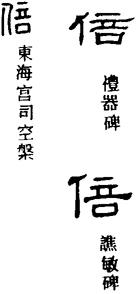 倍
禮器碑
倍
譙敏碑
倍
東海宫司空槃